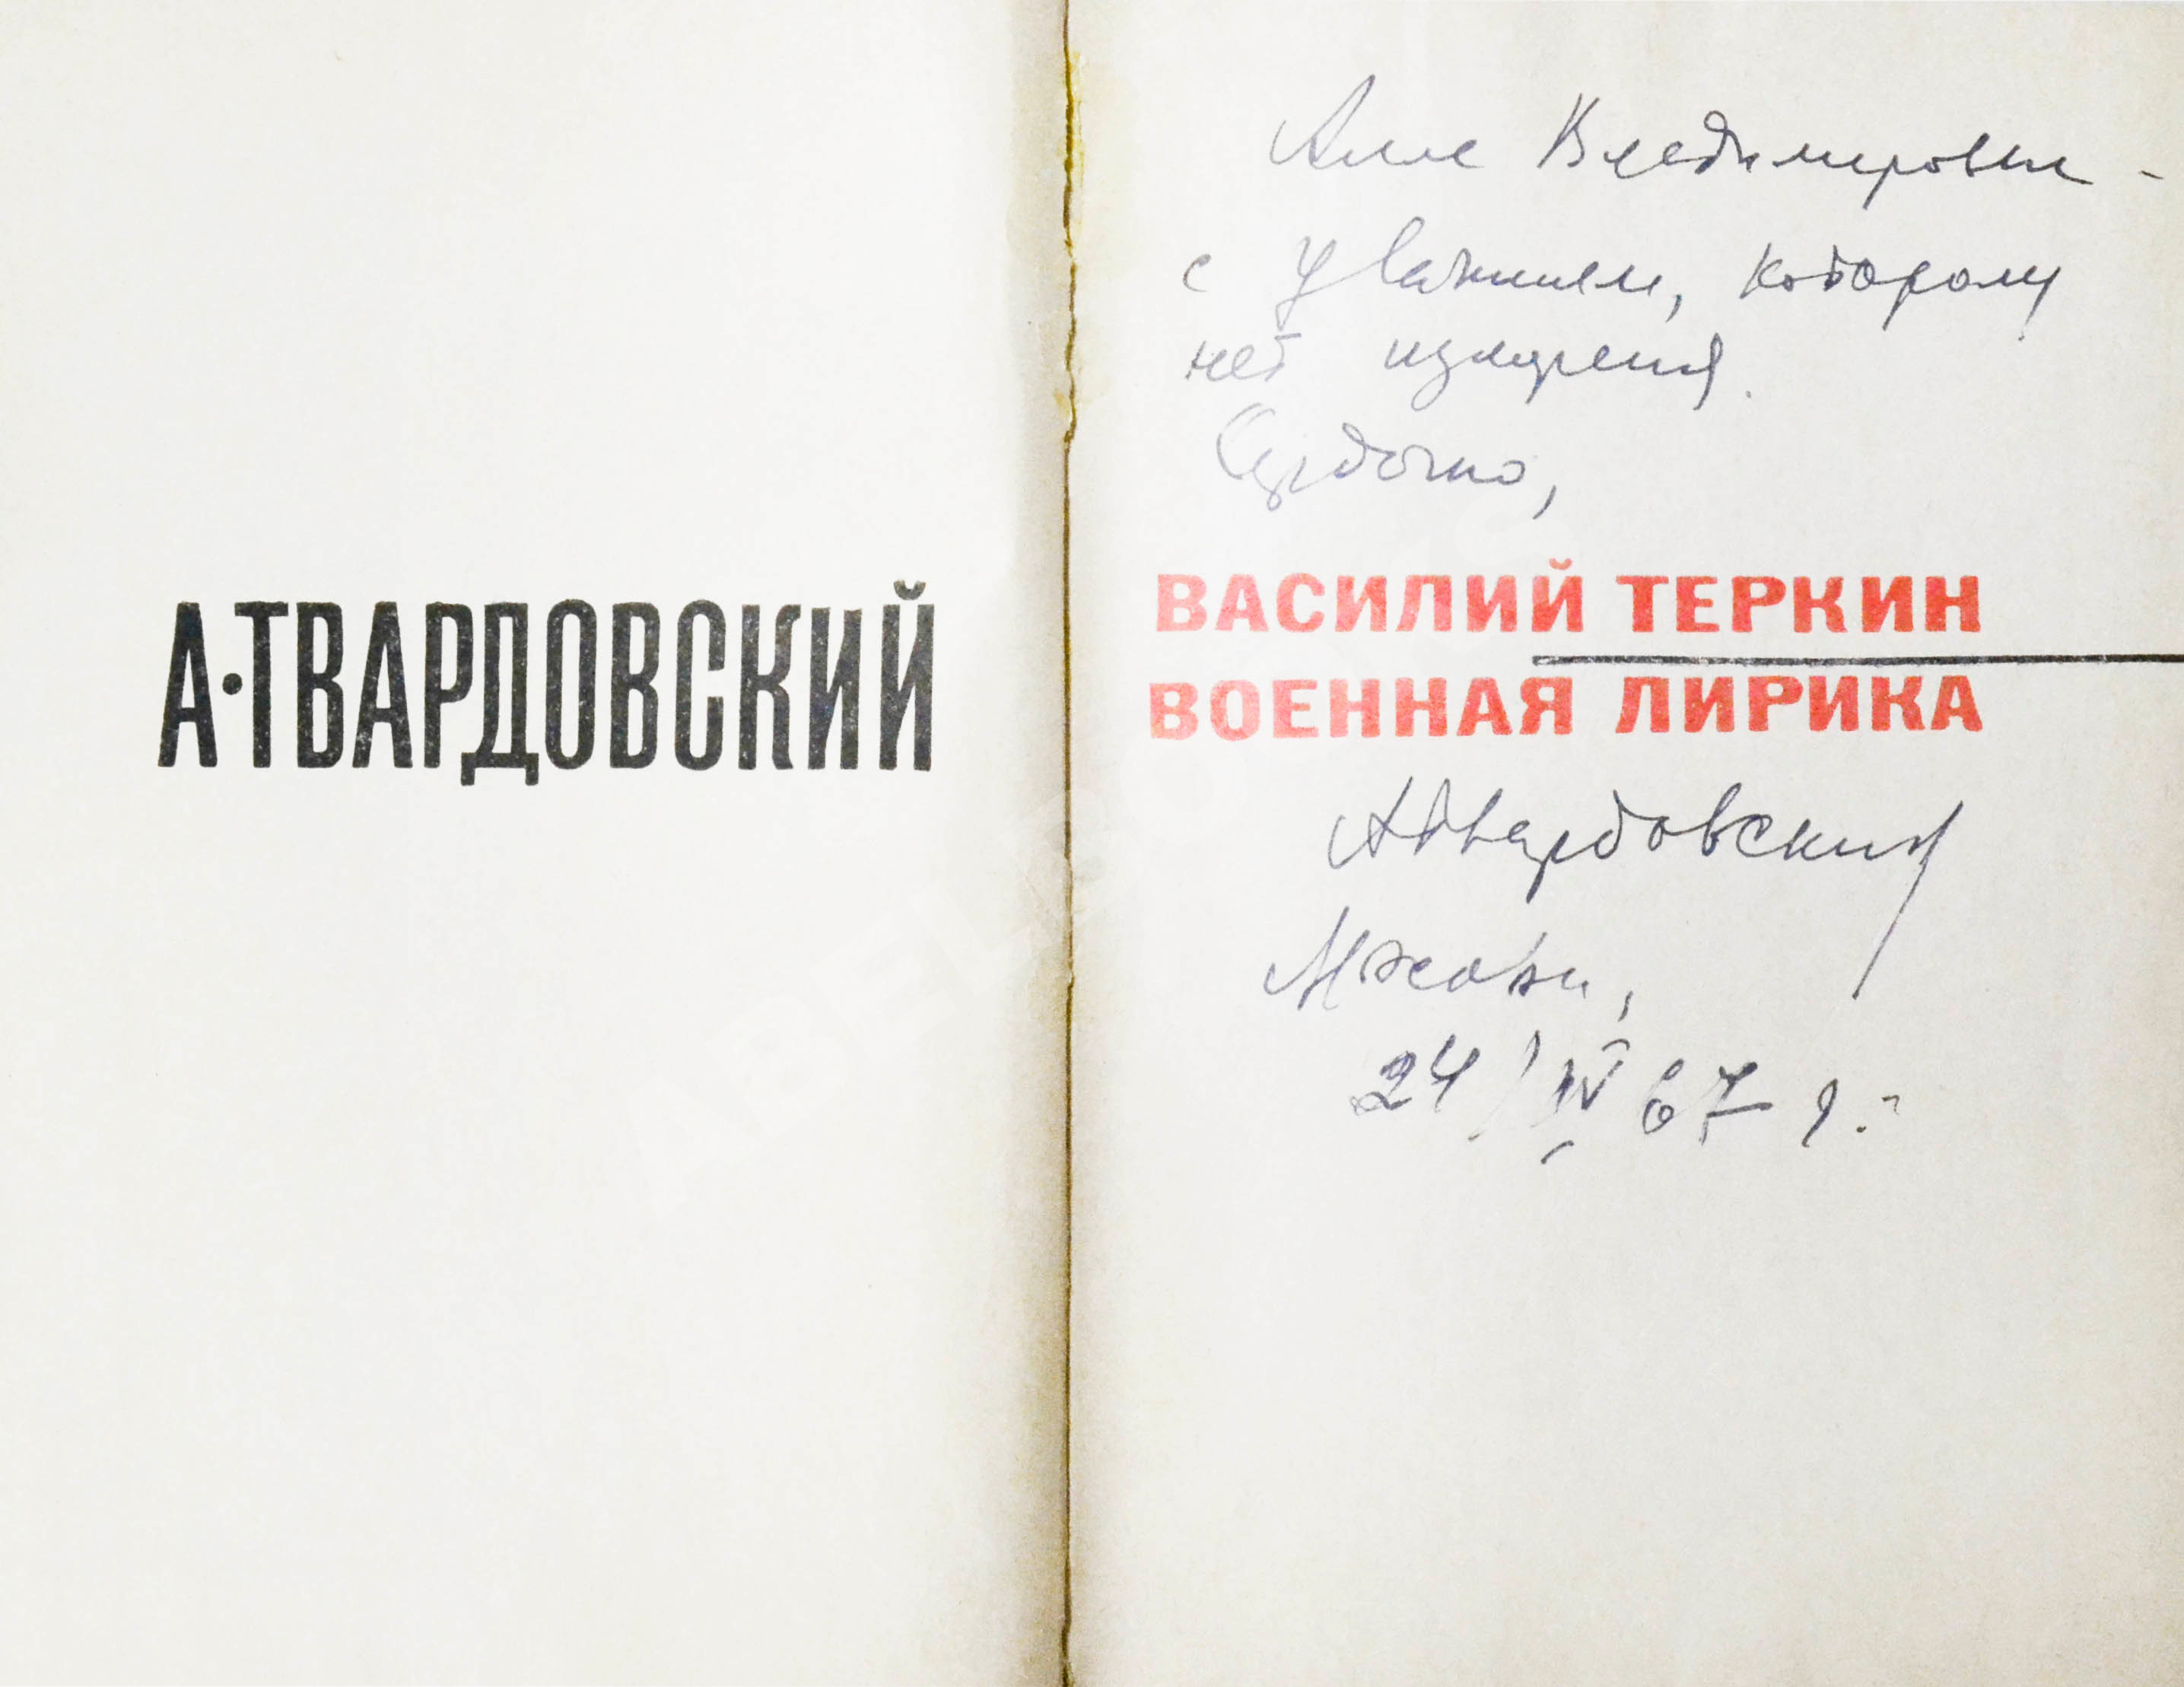 А·ТВАРДОВСКИЙ
Алле Владимировне -
с уважением, которому
нет измерения.
Сердечно,
ВАСИЛИЙ ТЕРКИН
ВОЕННАЯ ЛИРИКА
АТвардовский
24/IV 67 г.